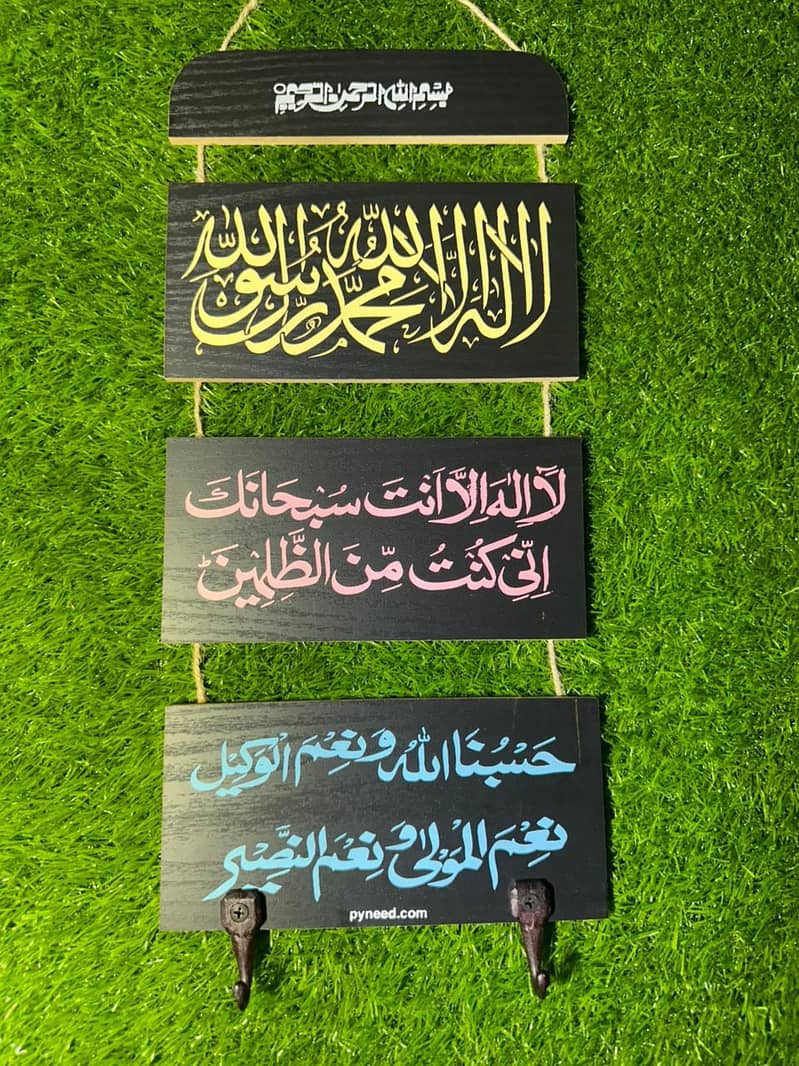 بسم الله الرحمن الرحيم
لا اله الا الله محمد رسول الله
لَآ اِلٰهَ اِلَّآ اَنْتَ سُبْحَانَكَ
اِنِّیْ كُنْتُ مِنَ الظّٰلِمِیْنَ
حَسْبُنَا اللهُ وَنِعْمَ الْوَكِیْل
نِعْمَ الْمَوْلٰی وَنِعْمَ النَّصِیْر
pyneed.com